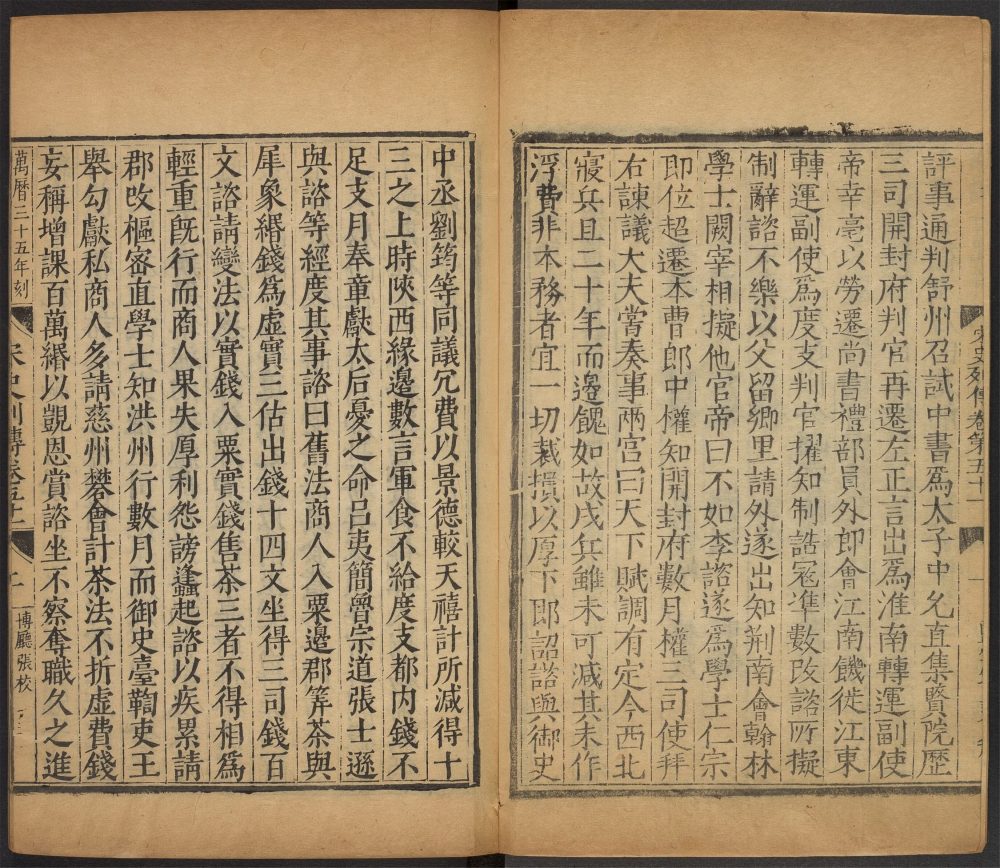 宋史列傳卷第五十一
評事通判舒州召試中書爲太子中允直集賢院歷
三司開封府判官再遷左正言出爲淮南轉運副使
帝幸亳以勞遷尚書禮部員外郎會江南饑徙江東
轉運副使爲度支判官擢知制誥寇準數改諮所擬
制辭諮不樂以父留鄉里請外遂出知荆南會翰林
學士闕宰相擬他官帝曰不如李諮遂爲學士仁宗
即位超遷本曹郎中權知開封府數月權三司使拜
右諫議大夫嘗奏事兩宮曰天下賦調有定今西北
寢兵且二十年而邊餽如故戍兵雖未可減其末作
浮費非本務者宜一切裁損以厚下即詔諮與御史
中丞劉筠等同議冗費以景德較天禧計所減得十
三之上時陝西緣邊數言軍食不給度支都內錢不
足支月奉章獻太后憂之命吕夷簡魯宗道張士遜
與諮等經度其事諮曰舊法商人入粟邊郡筭茶與
犀象緡錢爲虛實三估出錢十四文坐得三司錢百
文諮請變法以實錢入粟實錢售茶三者不得相爲
輕重旣行而商人果失厚利怨謗蠭起諮以疾累請
郡改樞密直學士知洪州行數月而御史臺鞫吏王
舉勾獻私商人多請慈州礬會計茶法不折虛費錢
妄稱增課百萬緡以覬恩賞諮坐不察奪職久之進
萬曆三十五年刻
宋史列傳卷五十一
二
博廳張校